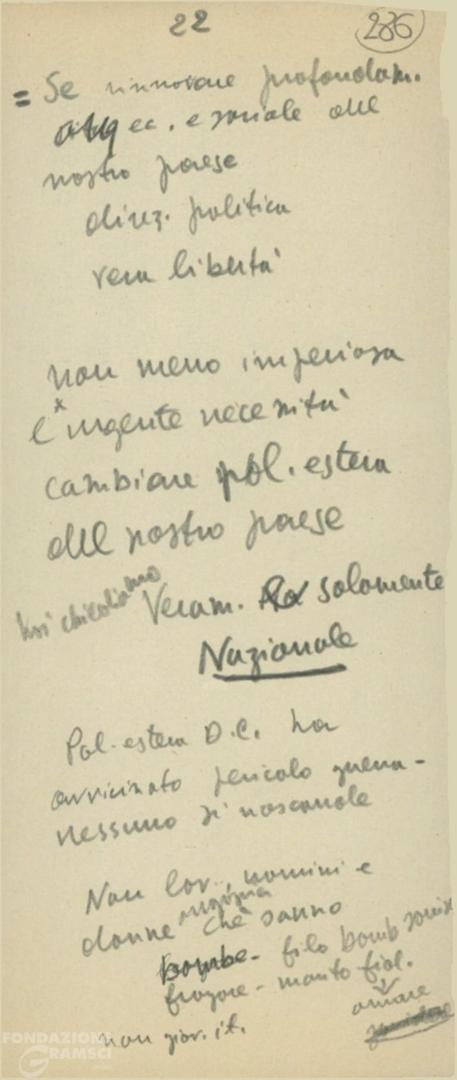 22
286
= Se rinnovare profondam.
ec. e sociale del
nostro paese
direz. politica
vera libertà
non meno imperiosa
e urgente necessità
cambiare pol. estera
del nostro paese
noi chiediamo
Veram. solamente
Nazionale
Pol. estera D.C. ha
avvicinato pericolo guerra -
nessuno si nasconde
Non lav., uomini e
donne che sanno
bombe - filo bomb
fragore - marito figl.
amare
non giov. it.
FONDAZIONE
GRAMSCI